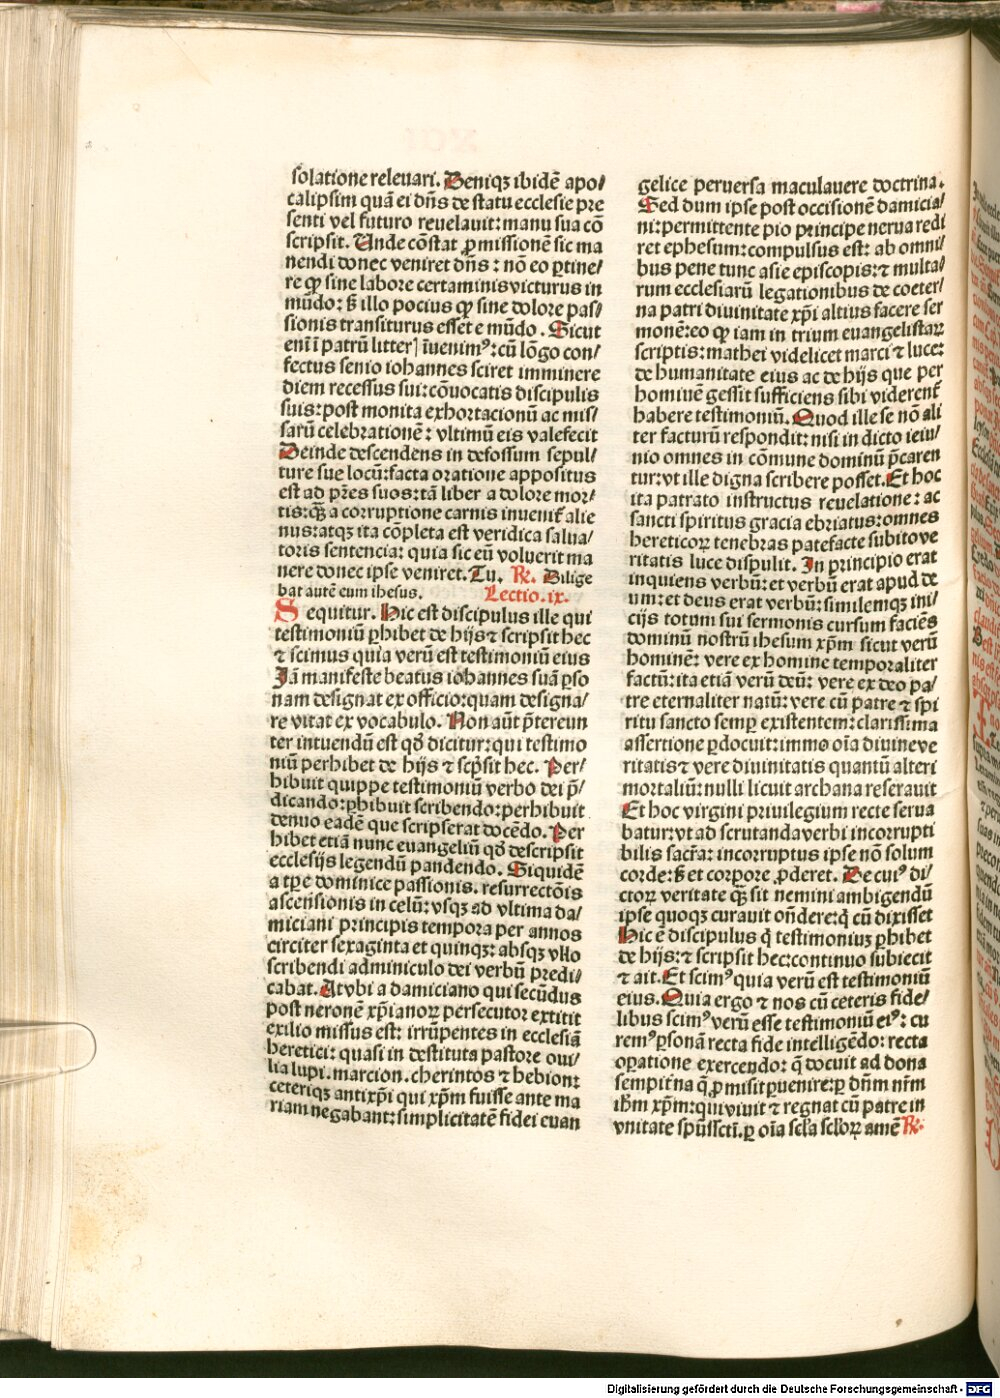 solatione releuari. Deniqꝫ ibidē apo⸗
calipsim quā ei dn̄s de statu ecclesie pre
senti vel futuro reuelauit: manu sua cō
scripsit. Unde cōstat ꝑmissionē sic ma
nendi donec veniret dn̄s: nō eo ꝑtine⸗
re ꝙ sine labore certaminis victurus in
mūdo: ꝫ illo pocius ꝙ sine dolore pas⸗
sionis transiturus esset e mūdo. Sicut
eni ī patrū litterꝭ īuenimꝰ: cū lōgo con⸗
fectus senio iohannes sciret imminere
diem recessus sui: cōuocatis discipulis
suis: post monita exhortacionū ac mis⸗
sarū celebrationē: vltimū eis valefecit
Deinde descendens in defossum sepul⸗
ture sue locū: facta oratione appositus
est ad p̄res suos: tā liber a dolore mor⸗
tis: qꝫ̄ a corruptione carnis inuenit̄ alie
nus: atqꝫ ita cōpleta est veridica salua⸗
toris sentencia: quia sic eū voluerit ma
nere donec ipse veniret. Tu. R̄. Dilige
bat autē eum ihesus. Lectio .ix.
Sequitur. Hic est discipulus ille qui
testimoniū ꝑhibet de hijs ⁊ scripsit hec
⁊ scimus quia verū est testimoniū eius
Jā manifeste beatus iohannes suā ꝑso
nam designat ex officio: quam designa⸗
re vitat ex vocabulo. Non aūt p̄tereun
ter intuendū est qd̄ dicitur: qui testimo
niū perhibet de hijs ⁊ scp̄sit hec. Per⸗
hibuit quippe testimoniū verbo dei p̄⸗
dicando: ꝑhibuit scribendo: perhibuit
denuo eadē que scripserat docēdo. Per
hibet etiā nunc euangeliū qd̄ descripsit
ecclesijs legendū pandendo. Siquidē
a tꝑe dominice passionis. resurrectōis
ascensionis in celū: vsqꝫ ad vltima da⸗
miciani principis tempora per annos
circiter sexaginta et quinqꝫ: absqꝫ vllo
scribendi adminiculo dei verbū predi⸗
cabat. At vbi a damiciano qui secūdus
post neronē xp̄ianoꝝ persecutor extitit
exilio missus est: irrūpentes in ecclesiā
heretici: quasi in destituta pastore oui⸗
lia lupi. marcion. cherintos ⁊ hebion:
ceteriqꝫ antixp̄i qui xp̄m fuisse ante ma
riam negabant: simplicitatē fidei euan
gelice peruersa maculauere doctrina.
Sed dum ipse post occisionē damicia⸗
ni: permittente pio principe nerua redi
ret ephesum: compulsus est: ab omni⸗
bus pene tunc asie episcopis: ⁊ multa⸗
rum ecclesiarū legationibus de coeter⸗
na patri diuinitate xp̄i altius facere ser
monē: eo ꝙ iam in trium euangelistaꝝ
scriptis: mathei videlicet marci ⁊ luce:
de humanitate eius ac de hijs que per
hominē gessit sufficiens sibi viderent̄
habere testimoniū. Quod ille se nō ali
ter facturū respondit: nisi in dicto ieiu⸗
nio omnes in cōmune dominū p̄caren
tur: vt ille digna scribere posset. Et hoc
ita patrato instructus reuelatione: ac
sancti spiritus gracia ebriatus: omnes
hereticoꝝ tenebras patefacte subito ve
ritatis luce dispulit. In principio erat
inquiens verbū: et verbū erat apud de
um: et deus erat verbū: similemqꝫ ini⸗
cijs totum sui sermonis cursum faciēs
dominū nostrū ihesum xp̄m sicut verū
hominē: vere ex homine temporaliter
factū: ita etiā verū deū: vere ex deo pa⸗
tre eternaliter natū: vere cū patre ⁊ spi
ritu sancto semꝑ existentem: clarissima
assertione ꝑdocuit: immo oīa diuine ve
ritatis ⁊ vere diuinitatis quantū alteri
mortaliū: nulli licuit archana reserauit
Et hoc virgini priuilegium recte serua
batur: vt ad scrutanda verbi incorrupti
bilis sacr̄a: incorruptus ipse nō solum
corde: ꝫ et corpore ꝓderet. De cuiꝰ di⸗
ctoꝝ veritate qꝫ̄ sit nemini ambigendū
ipse quoqꝫ curauit on̄dere: q̄ cū dixisset
Hic ē discipulus q̄ testimoniuꝫ ꝑhibet
de hijs: ⁊ scripsit hec: continuo subiecit
⁊ ait. Et scimꝰ quia verū est testimoniū
eius. Quia ergo ⁊ nos cū ceteris fide⸗
libus scimꝰ verū esse testimoniū eiꝰ: cu
remꝰ ꝑsonā recta fide intelligēdo: recta
oꝑatione exercendo: q̄ docuit ad dona
sempit̄na q̄ ꝓmisit ꝑuenire: ꝑ dn̄m nr̄m
ihm̄ xp̄m: qui viuit ⁊ regnat cū patre in
vnitate spūs sctī. ꝑ oīa scl̄a scl̄oꝝ amē R̄.
Digitalisierung gefördert durch die Deutsche Forschungsgemeinschaft - DFG